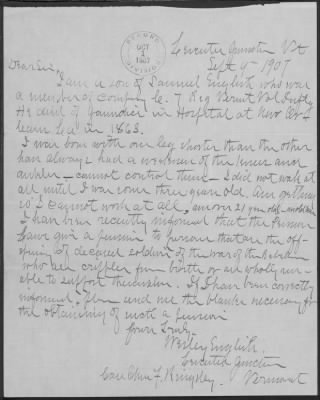 Leicester Junction Vt
Sept 9 - 1907
RECORD
OCT
1
1907
DIVISION
Dear Sir,
I am a son of Samuel English who was
a member of Company C. 7 Reg Vermt Vol Infty
He died of Jaundice in Hospital at New Or-
leans La in 1863.
I was born with one leg shorter than the other
han always had a weakness of the knees and
ankles - cannot control them - I did not walk at
all until I was some three years old. Am
I cannot work at all, am over 21 years old
I han been recently informed that the Pension
Laws give a pension to persons that are the off-
spring of deceased soldiers of the war of the Rebellion
who are cripples from birth or are wholly un-
able to support themselves. If I han been correctly
informed. Please send me the blanks necessary for
the obtaining of such a pension
Yours Truly.
Wesley English.
Leicester Junction
Care Chas F. Kingsley. Vermont